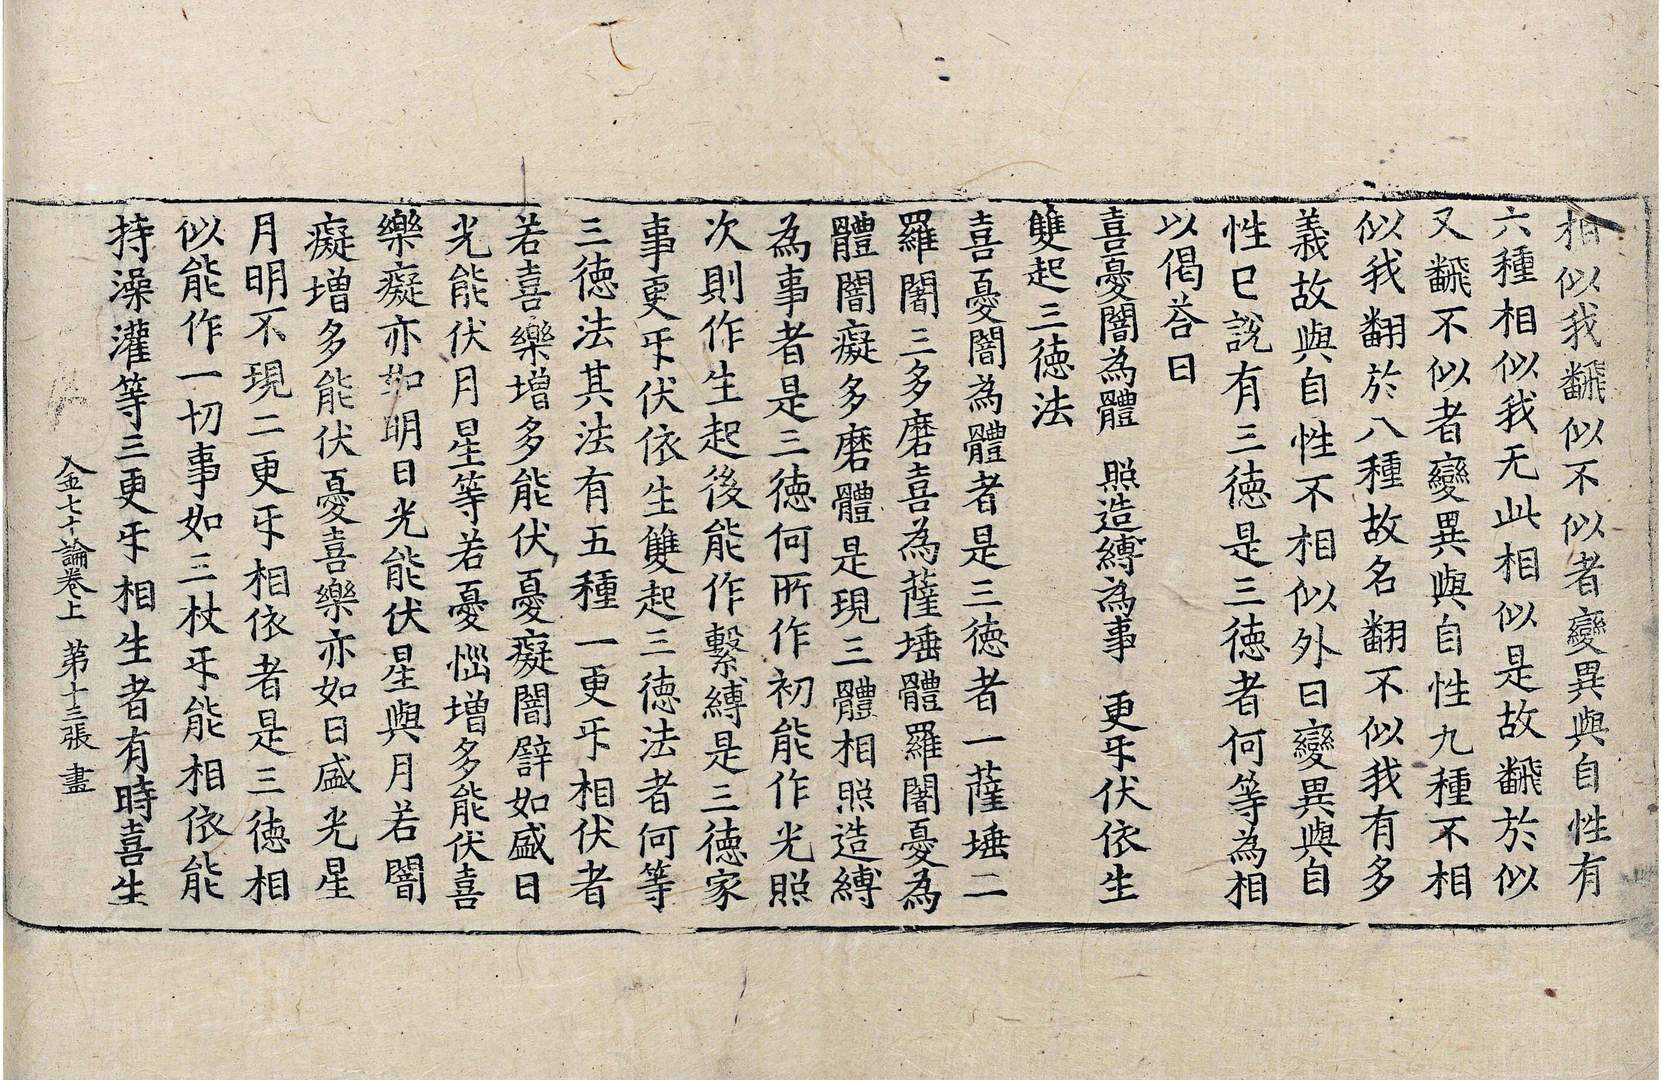 相似我翻似不似者變異與自性有
六種相似我无此相似是故翻於似
又翻不似者變異與自性九種不相
似我翻於八種故名翻不似我有多
義故與自性不相似外曰變異與自
性已說有三徳是三徳者何等為相
以偈荅曰
喜憂闇為體　照造縛為事　更㸦伏依生
雙起三徳法
喜憂闇為體者是三徳者一薩埵二
羅闍三多磨喜為薩埵體羅闍憂為
體闇癡多磨體是現三體相照造縛
為事者是三徳何所作初能作光照
次則作生起後能作繫縛是三徳家
事更㸦伏依生雙起三徳法者何等
三徳法其法有五種一更㸦相伏者
若喜樂增多能伏憂癡闇譬如盛日
光能伏月星等若憂惱增多能伏喜
樂癡亦如明日光能伏星與月若闇
癡增多能伏憂喜樂亦如日盛光星
月明不現二更㸦相依者是三徳相
似能作一切事如三杖㸦能相依能
持澡灌等三更㸦相生者有時喜生
金七十論卷上　第十三張　畫